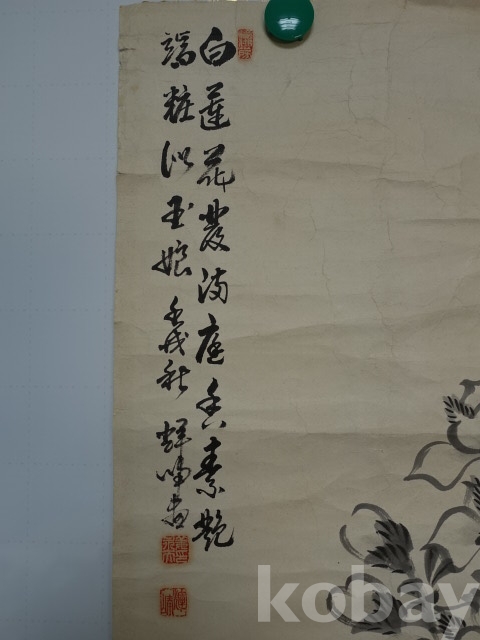 白蓮花發滿庭香素艶
端粧似玉娘 壬戌秋 輝鳴畵
kobay